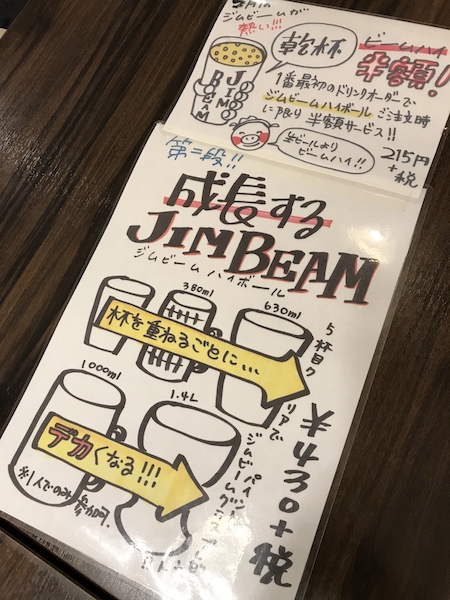 2月の
ジムビームが
熱い!!!
乾杯
ビームハイ
半額!
JIM
BEAM
1番最初のドリンクオーダーで
ジムビームハイボールご注文時
に限り半額サービス!!
生ビールより
ビームハイ!!
215円
+税
第二段!!
成長する
JIM BEAM
ジムビームハイボール
380ml
630ml
杯を重ねるごとに...
1000ml
1.4L
デカくなる!!!
※1人でのみ参加可.
5杯目クリアで
ジムビームグラスプレゼント
¥430+税